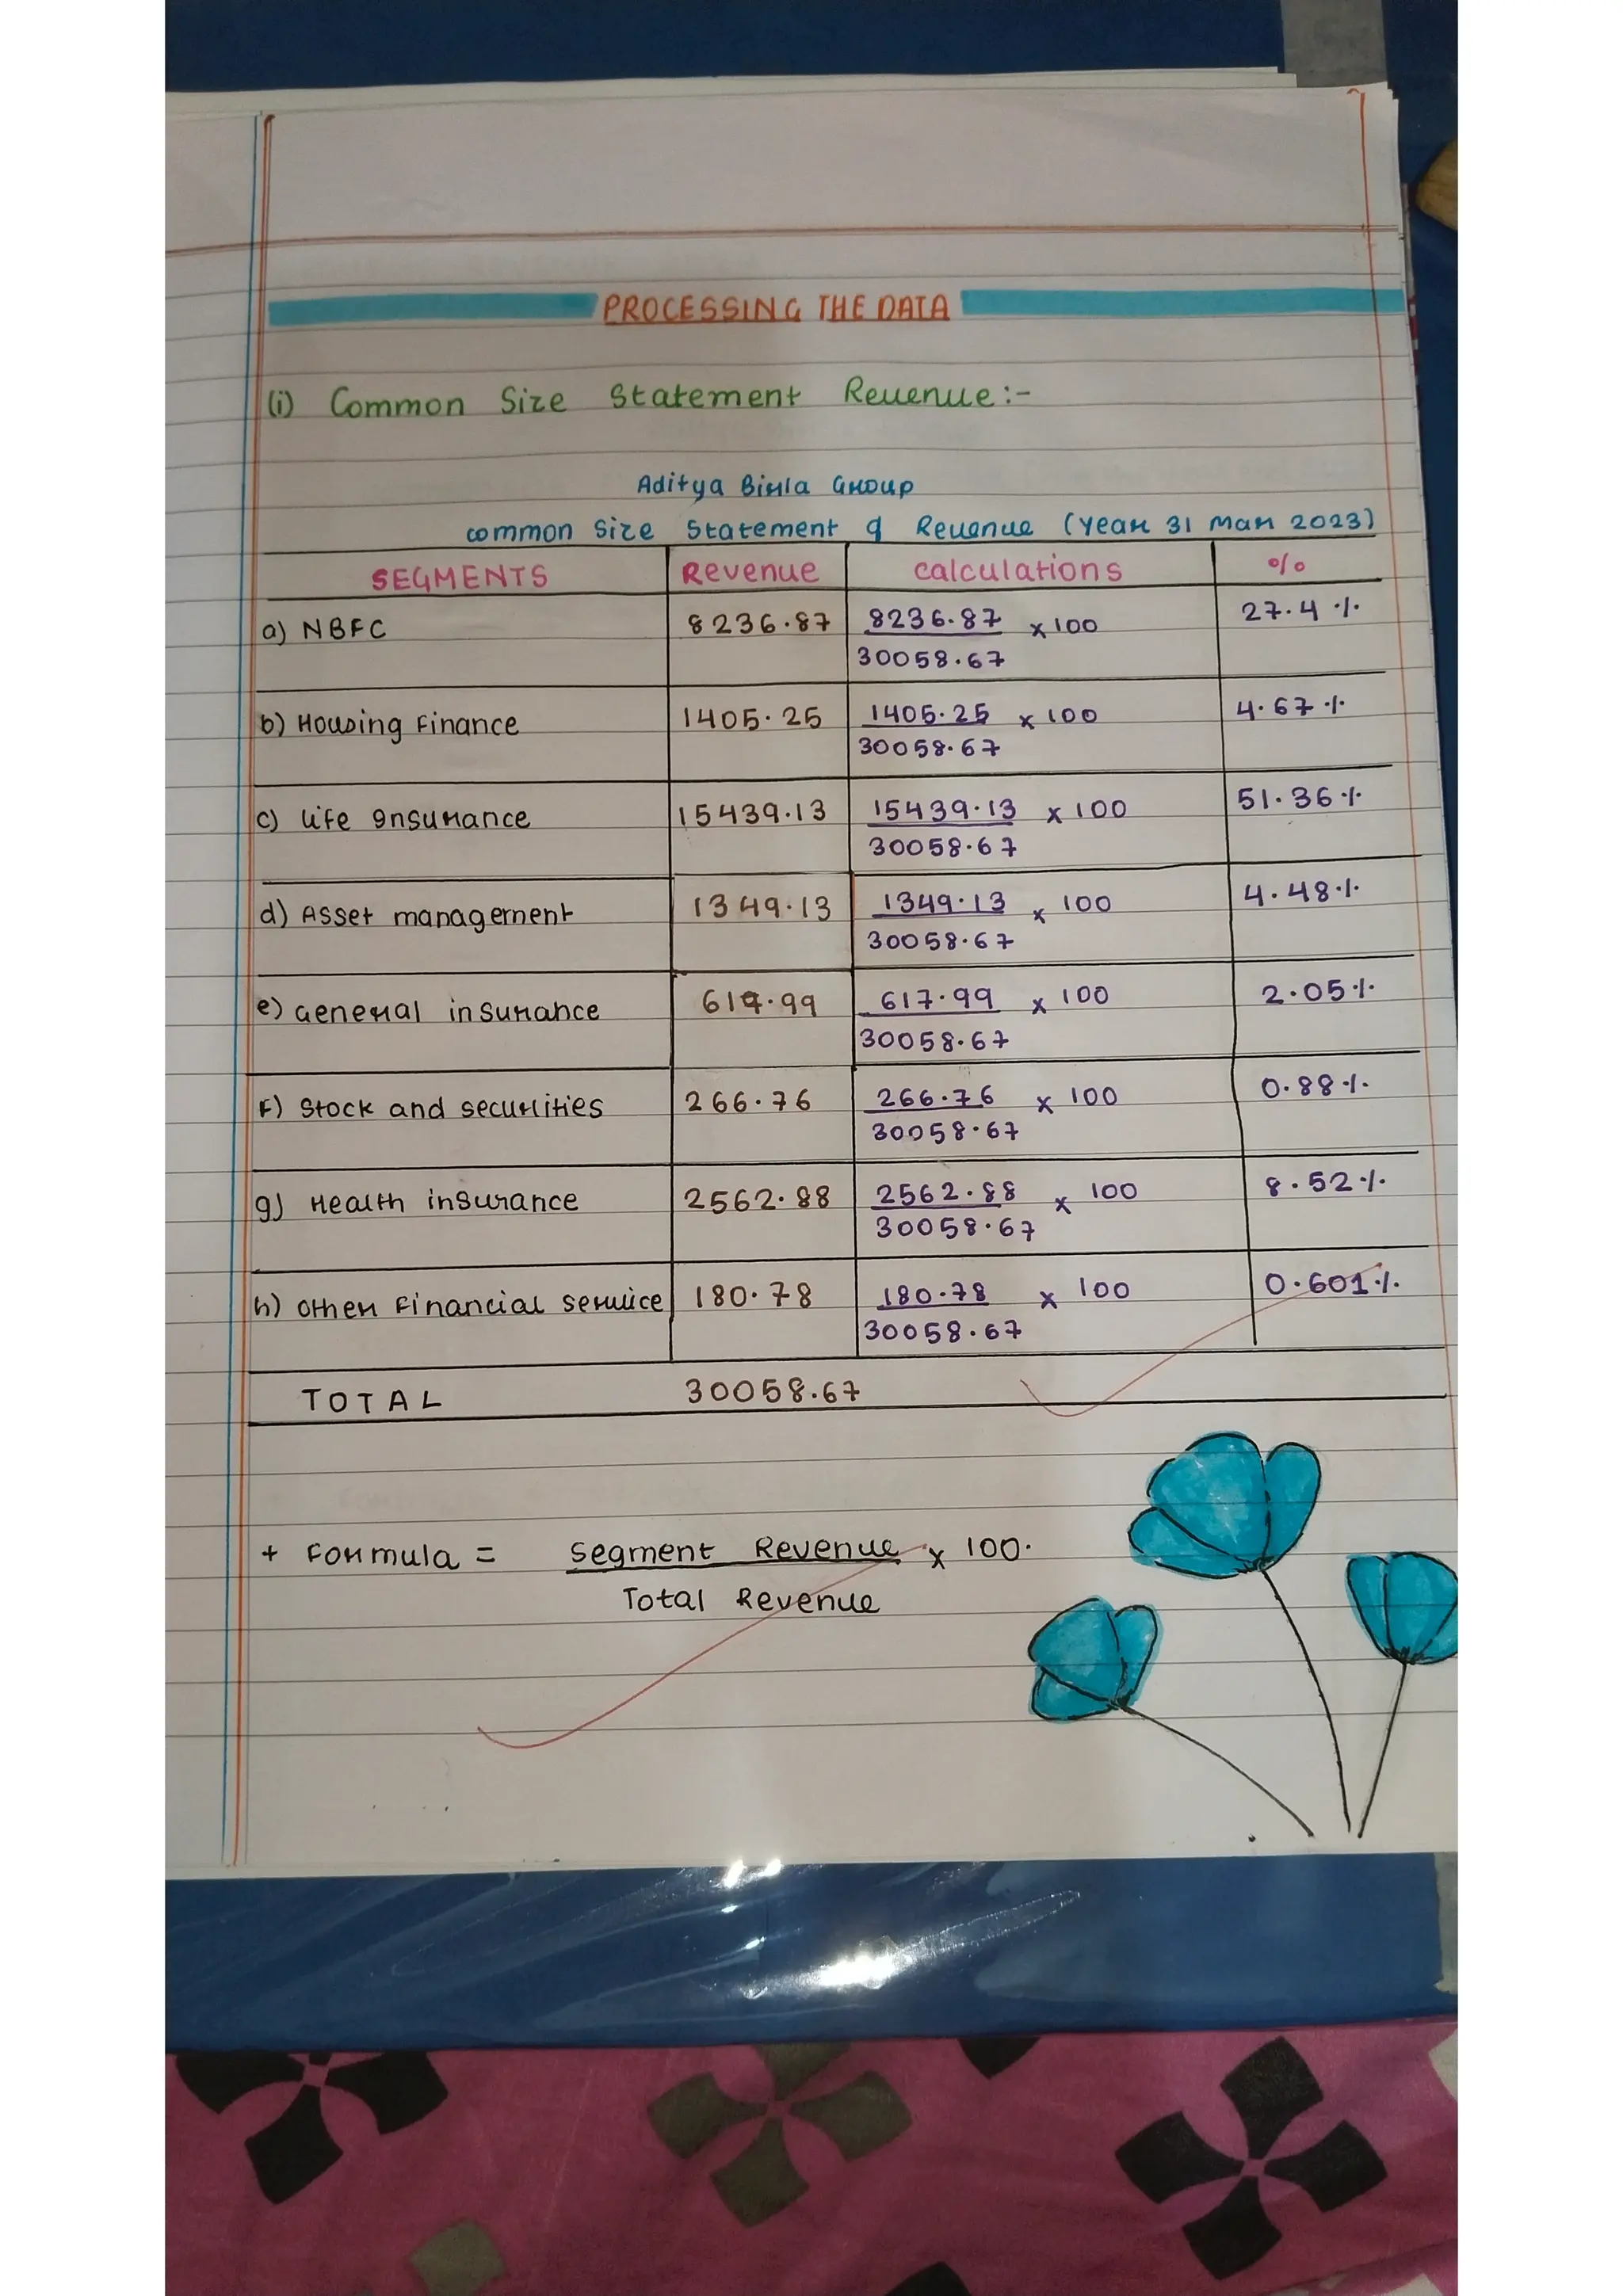 PROCESSING THE DATA
(i) Common Size Statement Revenue:-
Aditya Birla Group
common Size Statement of Revenue (Year 31 Mar 2023)
SEGMENTS Revenue calculations %
a) NBFC 8236.87 8236.87 x 100 27.4 %
30058.67
b) Housing Finance 1405.25 1405.25 x 100 4.67 %
30058.67
c) Life Insurance 15439.13 15439.13 x 100 51.36 %
30058.67
d) Asset management 1349.13 1349.13 x 100 4.48 %
30058.67
e) General insurance 617.99 617.99 x 100 2.05 %
30058.67
F) Stock and securities 266.76 266.76 x 100 0.88 %
30058.67
g) Health insurance 2562.88 2562.88 x 100 8.52 %
30058.67
h) Other Financial service 180.78 180.78 x 100 0.601 %
30058.67
TOTAL 30058.67
+ Formula = Segment Revenue x 100.
Total Revenue